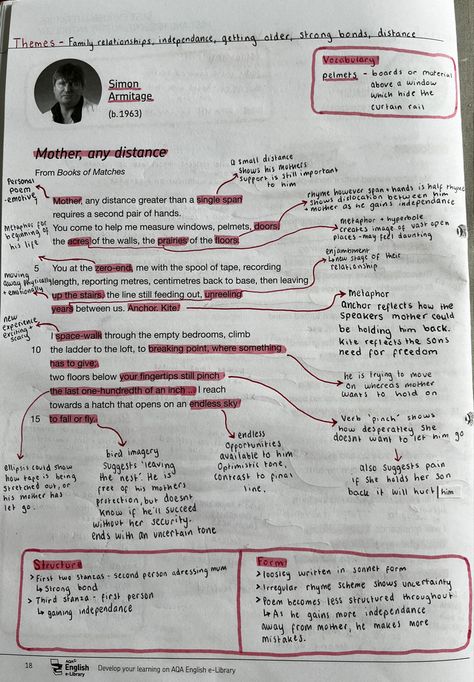 Themes - Family relationships, independence, getting older, strong bonds, distance
Simon
Armitage
(b. 1963)
Vocabulary
pelmets - boards or material
above a window
which hide the
curtain rail
Mother, any distance
From Books of Matches
Personal
poem
-emotive
a small distance
shows his mothers
support is still important
to him
rhyme however span + hands is half rhyme
shows dislocation between him
+ mother as he gains independence
Mother, any distance greater than a single span
requires a second pair of hands.
You come to help me measure windows, pelmets, doors,
the acres of the walls, the prairies of the floors.
Metaphor for
beginning of
his life
metaphor + hyperbole
creates image of vast open
places - may feel daunting
enjambment
↳new stage of their
relationship
5 You at the zero-end, me with the spool of tape, recording
length, reporting metres, centimetres back to base, then leaving
up the stairs, the line still feeding out, unreeling
years between us. Anchor. Kite.
moving
away physically
+ emotionally
Metaphor
Anchor reflects how the
speakers mother could
be holding him back.
Kite reflects the sons
need for freedom
new
experience
exciting +
scary
I space-walk through the empty bedrooms, climb
10 the ladder to the loft, to breaking point, where something
has to give;
two floors below your fingertips still pinch
the last one-hundredth of an inch ... I reach
towards a hatch that opens on an endless sky
15 to fall or fly.
he is trying to move
on whereas mother
wants to hold on
Verb 'pinch' shows
how desperatley she
doesnt want to let him go
also suggests pain
if she holds her son
back it will hurt him
ellipsis could show
how tape is being
stretched out, or
his mother has
let go.
bird imagery
Suggests 'leaving
the nest'. He is
free of his mothers
protection, but doesnt
know if he'll succeed
without her security.
ends with an uncertain tone
endless
Opportunities
available to him
Optimistic tone,
contrast to final
line.
Structure
> First two stanzas - second person adressing mum
↳ Strong bond
> Third stanza - first person
↳ gaining independance
Form
> loosley written in sonnet form
> Irregular rhyme scheme shows uncertainty
> Poem becomes less structured throughout
↳ As he gains more independance
away from mother, he makes more
mistakes.
18
AQA
English
e-Library
Develop your learning on AQA English e-Library